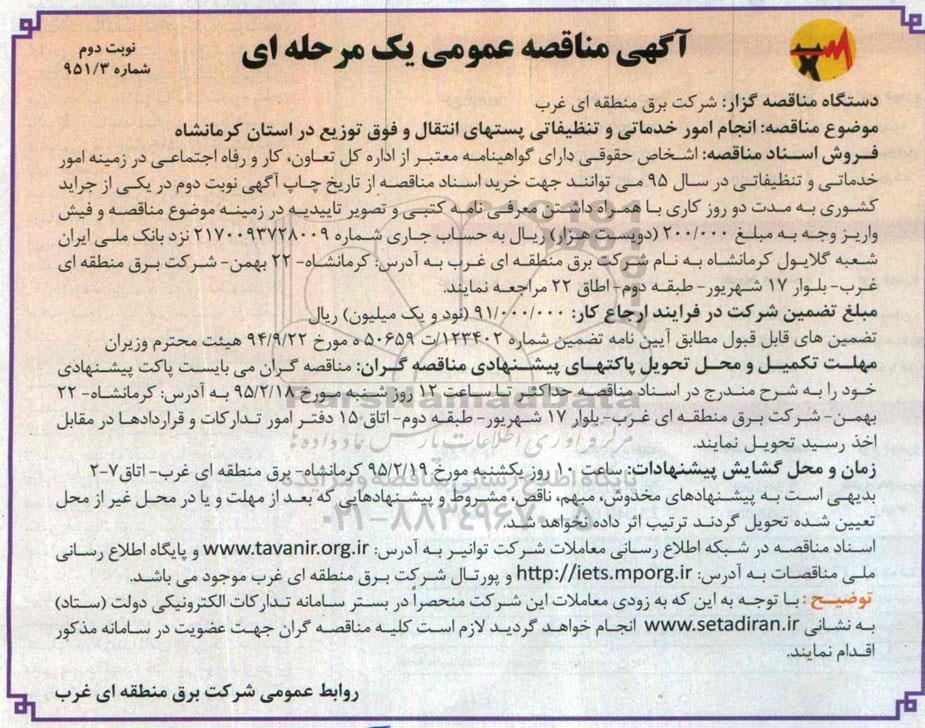 آگهی مناقصه عمومی یک مرحله ای
نوبت دوم
شماره ۹۵۱/۳
دستگاه مناقصه گزار: شرکت برق منطقه ای غرب
موضوع مناقصه: انجام امور خدماتی و تنظیفاتی پستهای انتقال و فوق توزیع در استان کرمانشاه
فروش اسناد مناقصه: اشخاص حقوقی دارای گواهینامه معتبر از اداره کل تعاون، کار و رفاه اجتماعی در زمینه امور
خدماتی و تنظیفاتی در سال ۹۵ می توانند جهت خرید اسناد مناقصه از تاریخ چاپ آگهی نوبت دوم در یکی از جراید
کشوری به مدت دو روز کاری با همراه داشتن معرفی نامه کتبی و تصویر تاییدیه در زمینه موضوع مناقصه و فیش
واریز وجه به مبلغ ۲۰۰/۰۰۰ (دویست هزار) ریال به حساب جاری شماره ۲۱۷۰۰۹۳۷۲۸۰۰۹ نزد بانک ملی ایران
شعبه گلایول کرمانشاه به نام شرکت برق منطقه ای غرب به آدرس: کرمانشاه- ۲۲ بهمن- شرکت برق منطقه ای
غرب- بلوار ۱۷ شهریور- طبقه دوم- اطاق ۲۲ مراجعه نمایند.
مبلغ تضمین شرکت در فرایند ارجاع کار: ۹۱/۰۰۰/۰۰۰ (نود و یک میلیون) ریال
تضمین های قابل قبول مطابق آیین نامه تضمین شماره ۱۲۳۴۰۲/ت ۵۰۶۵۹ ه مورخ ۹۴/۹/۲۲ هیئت محترم وزیران
مهلت تکمیل و محل تحویل پاکتهای پیشنهادی مناقصه گران: مناقصه گران می بایست پاکت پیشنهادی
خود را به شرح مندرج در اسناد مناقصه حداکثر تا ساعت ۱۲ روز شنبه مورخ ۹۵/۲/۱۸ به آدرس: کرمانشاه- ۲۲
بهمن- شرکت برق منطقه ای غرب- بلوار ۱۷ شهریور- طبقه دوم- اتاق ۱۵ دفتر امور تدارکات و قراردادها در مقابل
اخذ رسید تحویل نمایند.
زمان و محل گشایش پیشنهادات: ساعت ۱۰ روز یکشنبه مورخ ۹۵/۲/۱۹ کرمانشاه- برق منطقه ای غرب- اتاق۷-۲
بدیهی است به پیشنهادهای مخدوش، مبهم، ناقص، مشروط و پیشنهادهایی که بعد از مهلت و یا در محل غیر از محل
تعیین شده تحویل گردند ترتیب اثر داده نخواهد شد.
اسناد مناقصه در شبکه اطلاع رسانی معاملات شرکت توانیر به آدرس: www.tavanir.org.ir و پایگاه اطلاع رسانی
ملی مناقصات به آدرس: http://iets.mporg.ir و پورتال شرکت برق منطقه ای غرب موجود می باشد.
توضیح: با توجه به این که به زودی معاملات این شرکت منحصراً در بستر سامانه تدارکات الکترونیکی دولت (ستاد)
به نشانی www.setadiran.ir انجام خواهد گردید لازم است کلیه مناقصه گران جهت عضویت در سامانه مذکور
اقدام نمایند.
روابط عمومی شرکت برق منطقه ای غرب
ParsNamadData
مرکز فرآوری اطلاعات پارس نماد داده ها
پایگاه اطلاع رسانی مناقصه و مزایده
۰۲۱-۸۸۳۴۹۶۷۰-۵